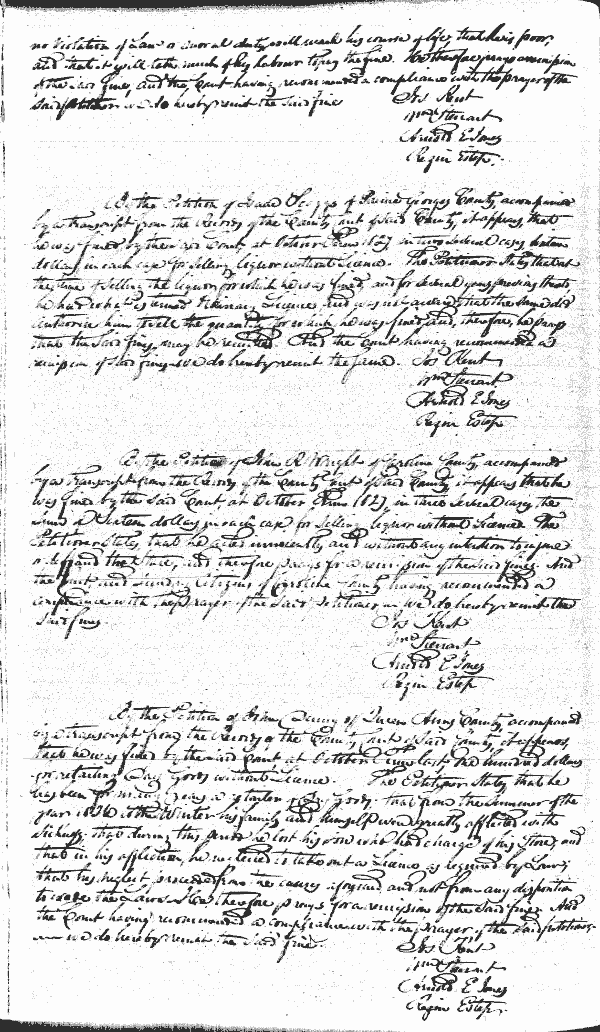 no violation of Law or moral duty will mark his course of life, that he is poor,
and that it will take much of his labour to pay the fine. He therefore prays a remission
of the said fine, and the Court having recommended a compliance with the prayer of the
said petition we do hereby remit the said fine
Jos Kent
Wm Stewart
Arnold E Jones
Rezin Estep.
By the Petition of Isaac Scaggs of Prince Georges County, accompanied
by a transcript from the Records of the County Court of said County, it appears, that
he was fined by the said Court at October Term 1827 in two several cases
dollars in each case for selling liquor without License. The Petitioner States that at
the time of selling the liquor for which he was fined, and for several years preceding that,
he had what is termed Ordinary License, and was not aware that the same did
authorise him to sell the quantity for which he was fined, and, therefore, he prays
that the said fines may be remitted. And the Court having recommended a
remission of said fines we do hereby remit the same.
Jos Kent
Wm Stewart
Arnold E Jones
Rezin Estep
By the Petition of John R Wright of Caroline County, accompanied
by a transcript from the Records of the County Court of said County it appears that he
was fined by the said Court, at October Term 1827, in three several cases the
sum of sixteen dollars in each case for selling liquor without License. The
Petitioner States, that he acted innocently and without any intention to injure
or defraud the State, and therefore prays for a remission of the said fines. And
the Court and Sundry Citizens of Caroline County having recommended a
compliance with the prayer of the said Petitioner we do hereby remit the
said fines.
Jos Kent
Wm Stewart
Arnold E Jones
Rezin Estep
By the Petition of John Denny of Queen Anns County, accompanied
by a transcript from the Records of the County Court of said County, it appears,
that he was fined by the said Court at October Term last One hundred dollars
for retailing Dry Goods without License. The Petitioner States, that he
has been for many years a of Dry Goods; that from the Summer of the
year 1826 to the Winter his family and himself were greatly afflicted with
sickness, that during this period he lost his son who had charge of his Store, and
that in his affliction, he neglected to take out a License as required by Law;
that his neglect proceeded from the causes aforesaid and not from any disposition
to evade the Laws. He therefore prays for a remission of the said fine. And
the Court having recommended a compliance with the prayer of the said petitioner
we do hereby remit the said fine.
Jos Kent
Wm Stewart
Arnold E Jones
Rezin Estep.